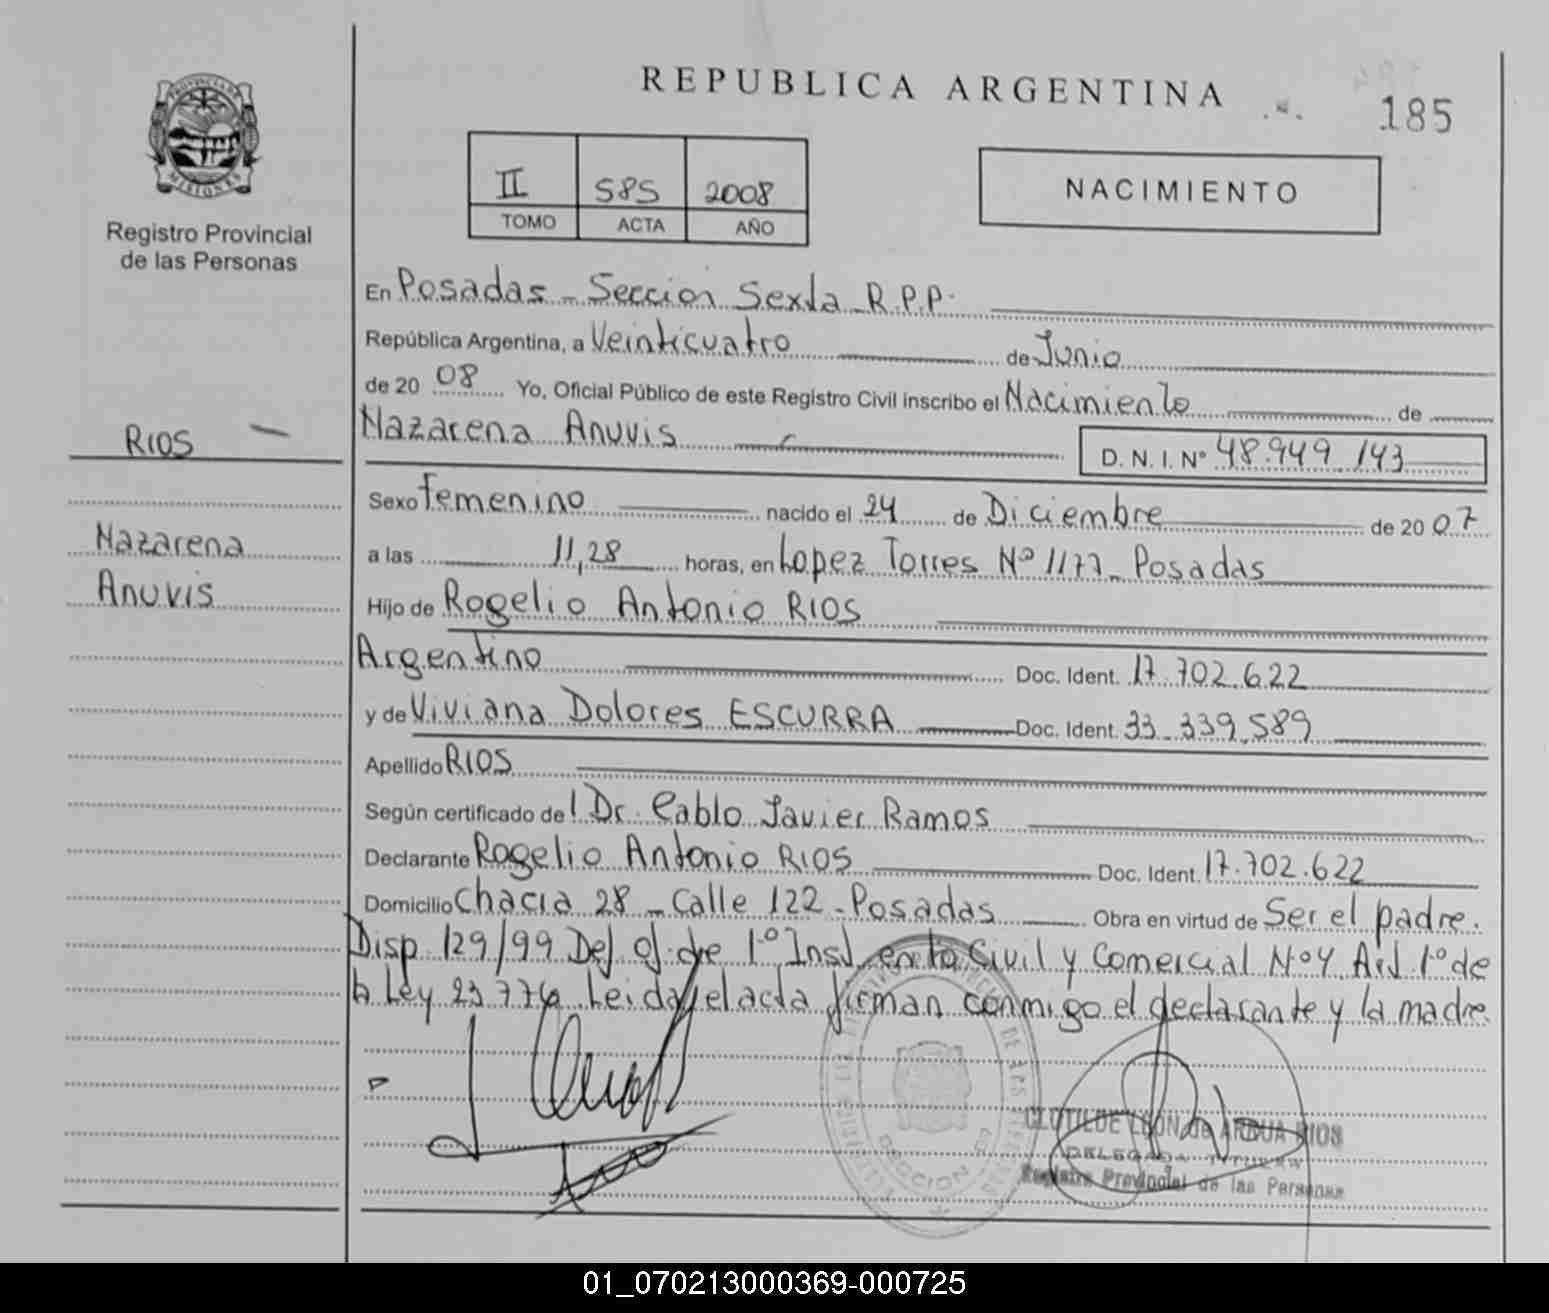 REPUBLICA ARGENTINA
185
PROVINCIA DE MISIONES
Registro Provincial
de las Personas
II 585 2008
TOMO ACTA AÑO
NACIMIENTO
En Posadas - Seccion Sexta R.P.P.
República Argentina, a Veinticuatro de Junio
de 20 08 Yo, Oficial Público de este Registro Civil inscribo el Nacimiento de
Nazarena Anuvis D. N. I. Nº 48.949.143
RIOS
Nazarena
Anuvis
Sexo Femenino nacido el 24 de Diciembre de 20 07
a las 11,28 horas, en Lopez Torres Nº 1177 - Posadas
Hijo de Rogelio Antonio RIOS
Argentino Doc. Ident. 17.702.622
y de Viviana Dolores ESCURRA Doc. Ident. 33.339.589
Apellido RIOS
Según certificado de l Dr. Pablo Javier Ramos
Declarante Rogelio Antonio RIOS Doc. Ident. 17.702.622
Domicilio Chacra 28 - Calle 122 - Posadas Obra en virtud de Ser el padre.
Disp. 129/99 Def. of. de 1º Inst. en lo Civil y Comercial Nº 4 Art 1º de
la Ley 23.776 Leida el acta firman conmigo el declarante y la madre.
CLOTILDE LEON de ARRUA RIOS
DELEGADA TITULAR
Registro Provincial de las Personas
01_070213000369-000725